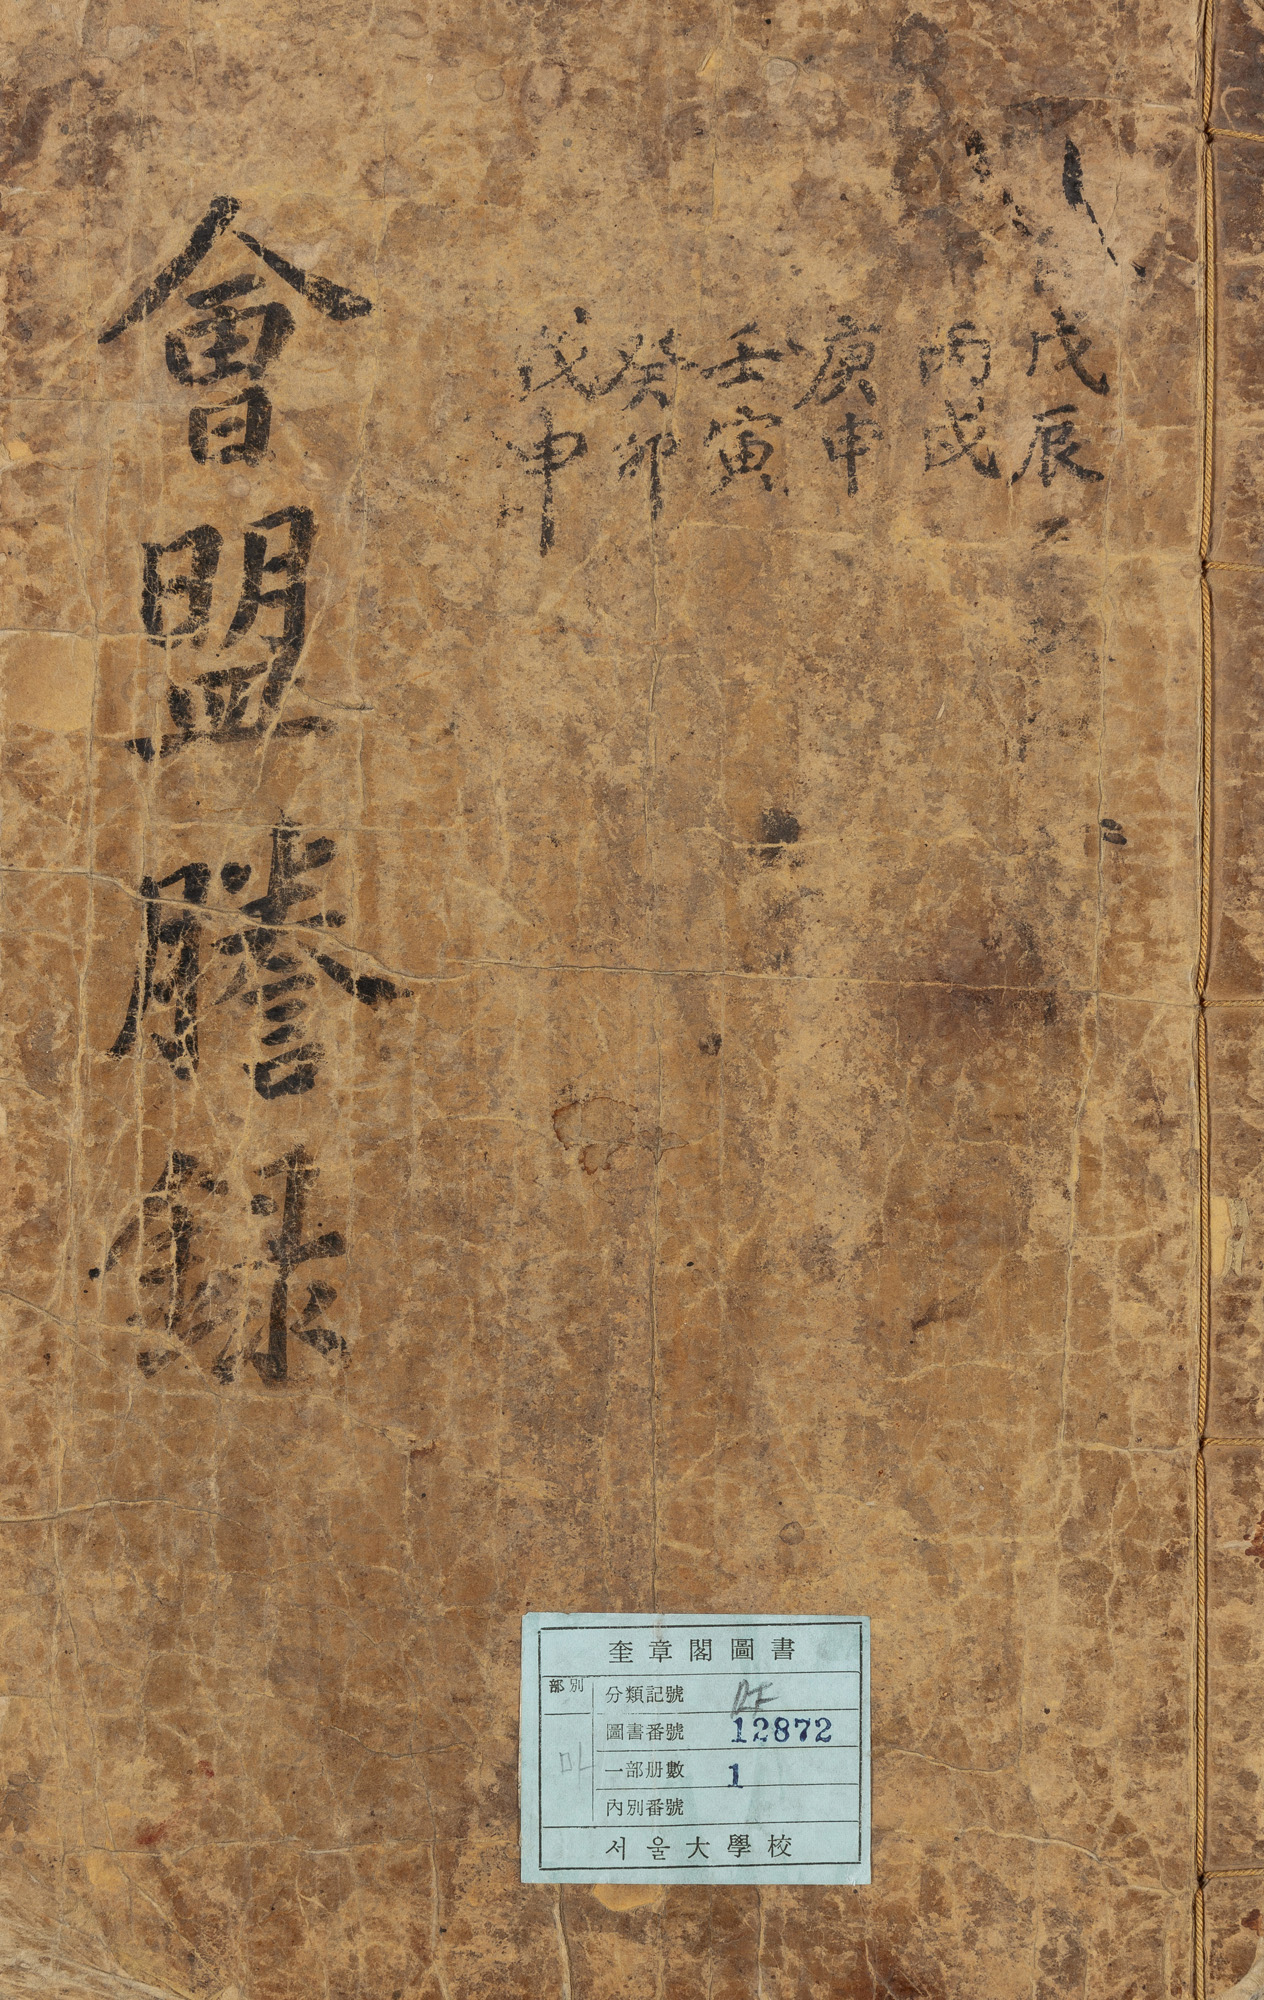 戊辰
丙戌
庚申
壬寅
癸卯
戊申
會盟謄錄
奎章閣圖書
部別
分類記號
圖書番號 12872
一部册數 1
內別番號
서울大學校